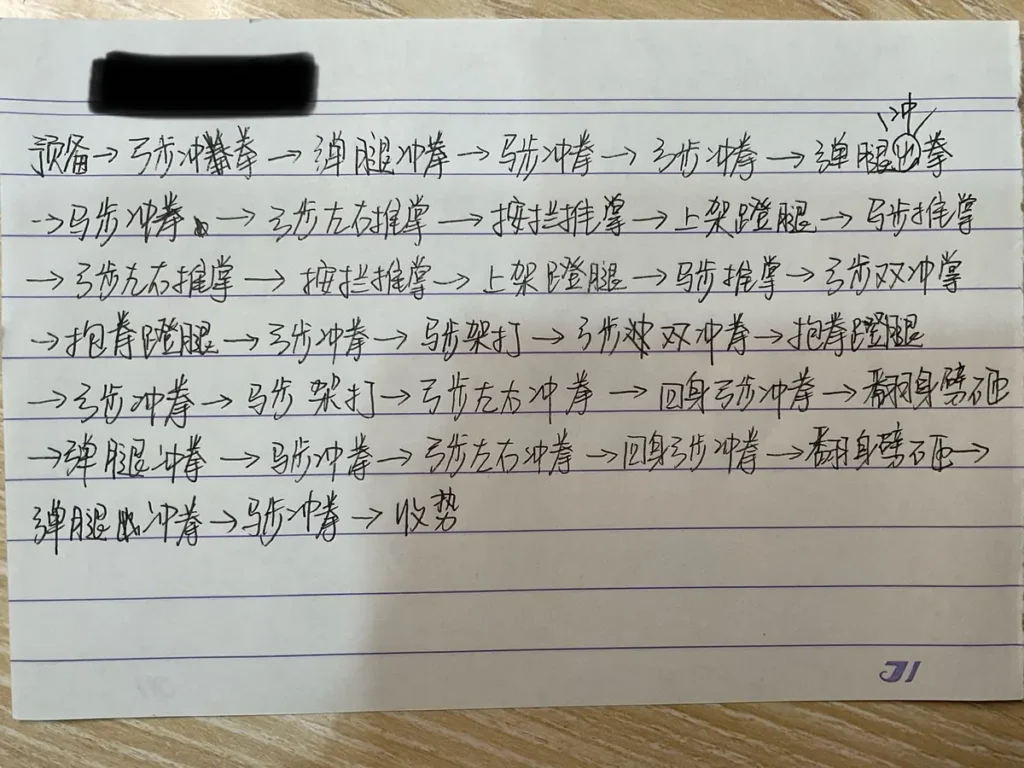 预备→弓步冲拳→弹腿冲拳→马步冲拳→弓步冲拳→弹腿冲拳
→马步冲拳→弓步左右推掌→按拦推掌→上架蹬腿→马步推掌
→弓步左右推掌→按拦推掌→上架蹬腿→马步推掌→弓步双冲掌
→抱拳蹬腿→弓步冲拳→马步架打→弓步双冲拳→抱拳蹬腿
→弓步冲拳→马步架打→弓步左右冲拳→回身弓步冲拳→翻身劈砸
→弹腿冲拳→马步冲拳→弓步左右冲拳→回身弓步冲拳→翻身劈砸→
弹腿冲拳→马步冲拳→收势